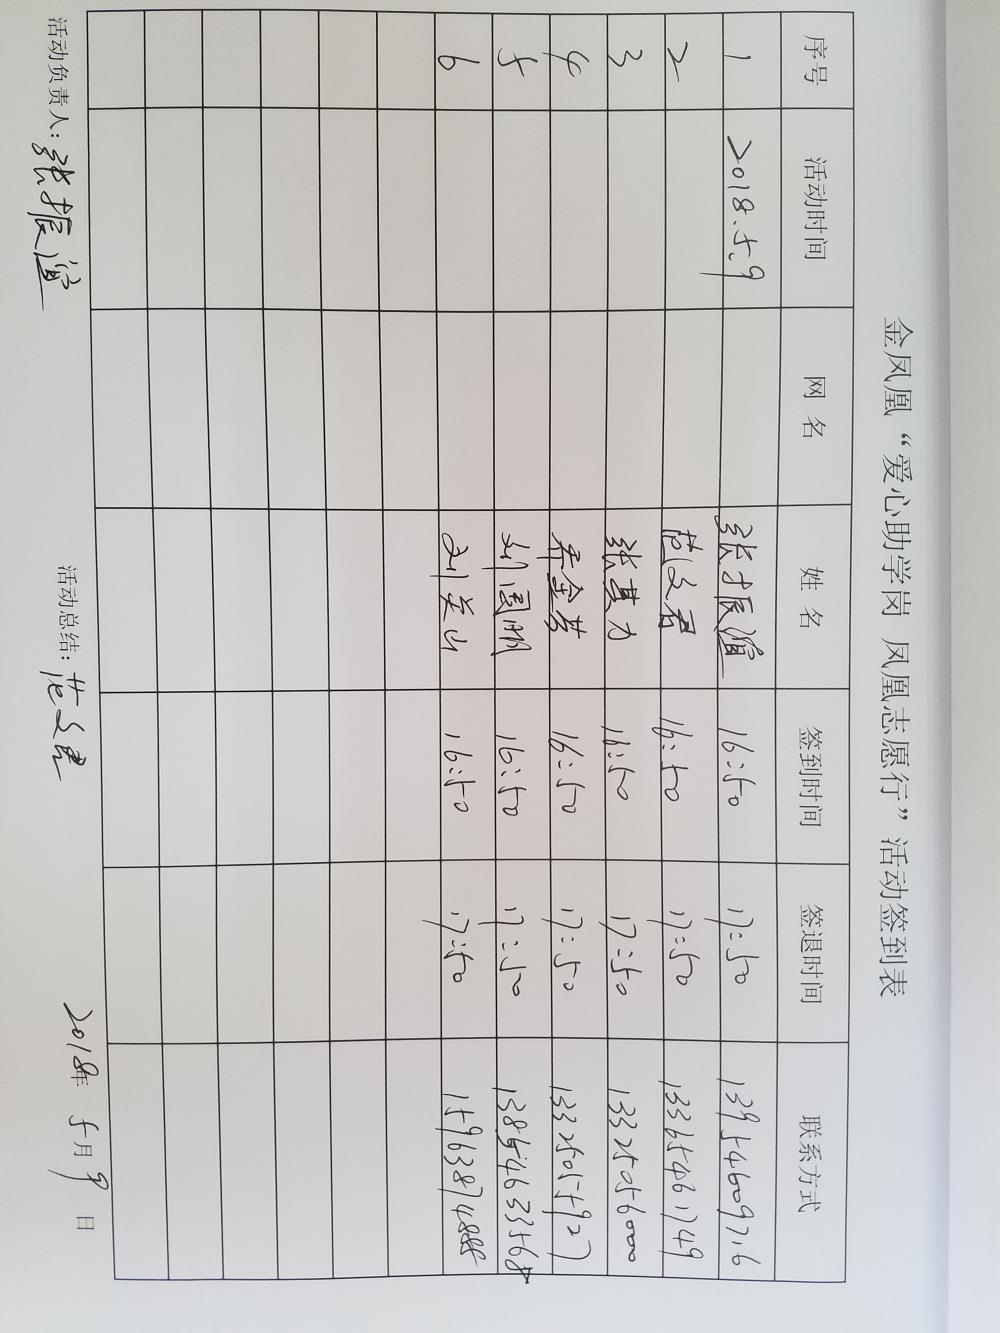 金凤凰“爱心助学岗 凤凰志愿行”活动签到表
序号 活动时间 网名 姓名 签到时间 签退时间 联系方式
1 2018.5.9 张振溢 16:50 17:50 13954609716
2 范文君 16:50 17:50 13365461749
3 张其力 16:50 17:50 13325056000
4 乔金芳 16:50 17:50 13325055927
5 刘国鹏 16:50 17:50 13854633568
6 刘关山 16:50 17:50 15963874888
活动负责人:张振溢 活动总结:范文君 2018年 5月 9日